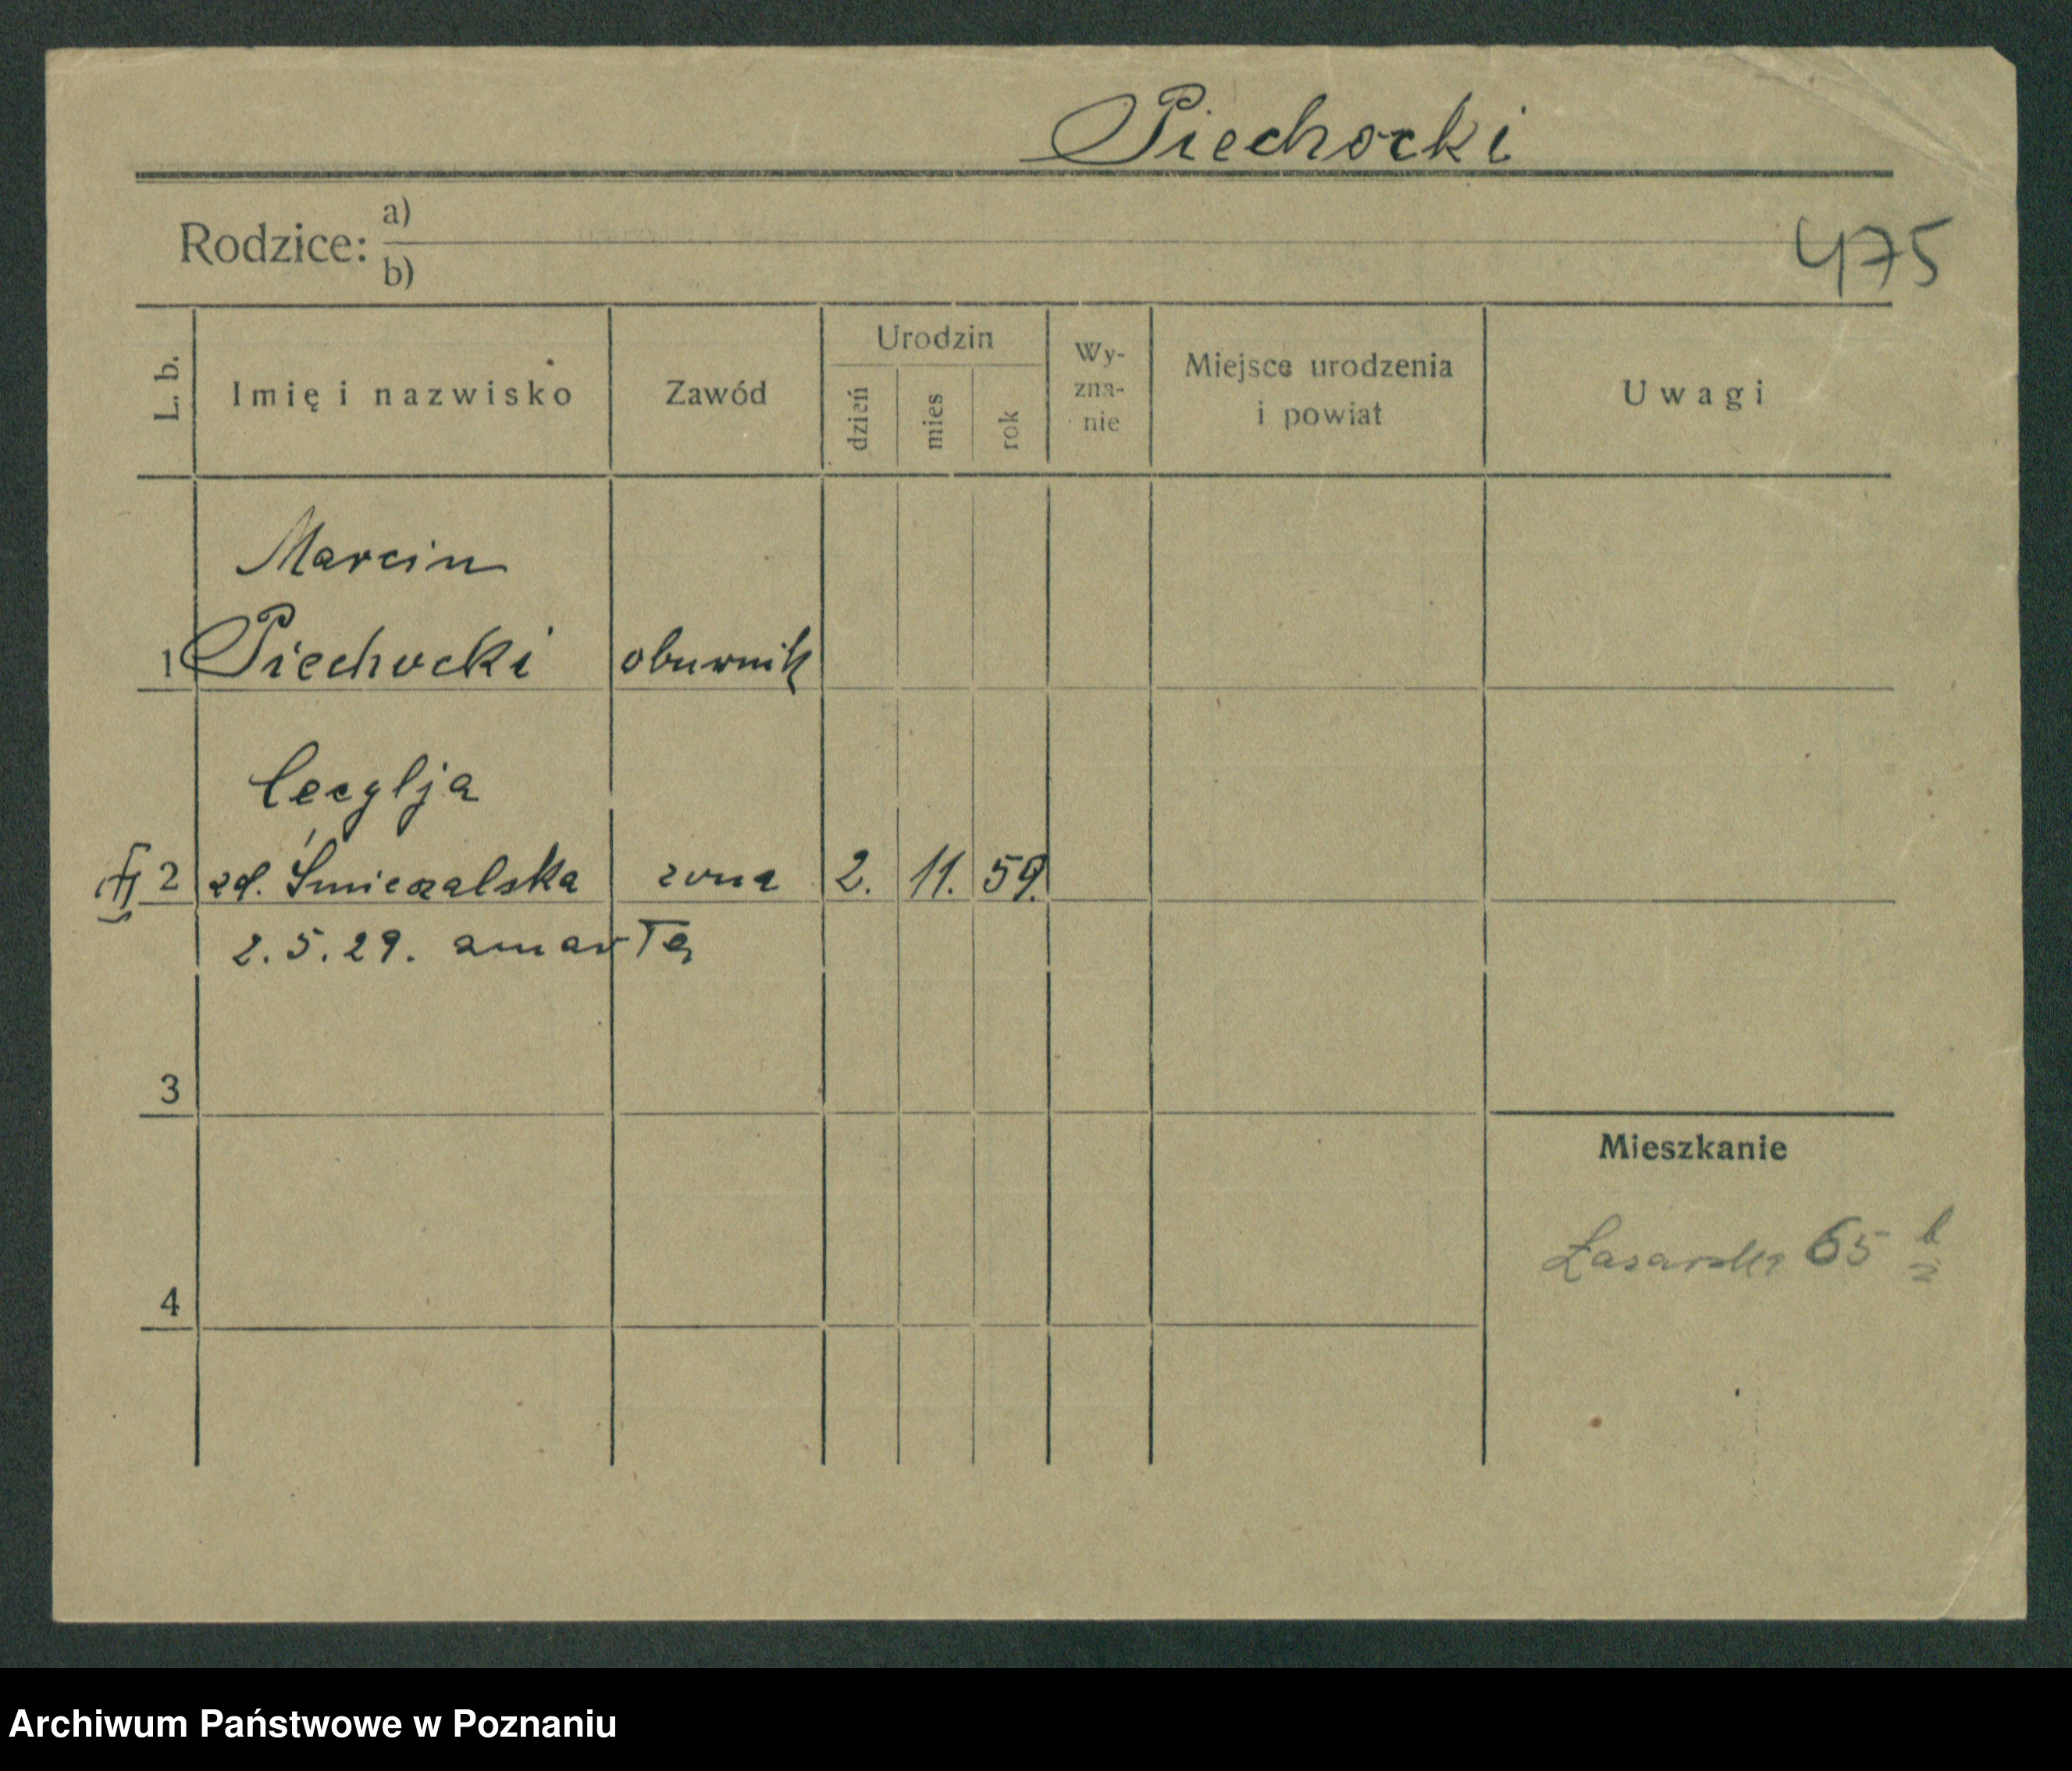 Piechocki
Rodzice: a)
b)
475
L. b.
Imię i nazwisko
Zawód
Urodzin
dzień
mies
rok
Wy-
zna-
nie
Miejsce urodzenia
i powiat
Uwagi
Marcin
1 Piechocki obuwnik
Cecylja
2 zd. Śmieszalska żona 2. 11. 59.
2.5.29. zmarła
3
Mieszkanie
Łazarska 65 b
4
Archiwum Państwowe w Poznaniu